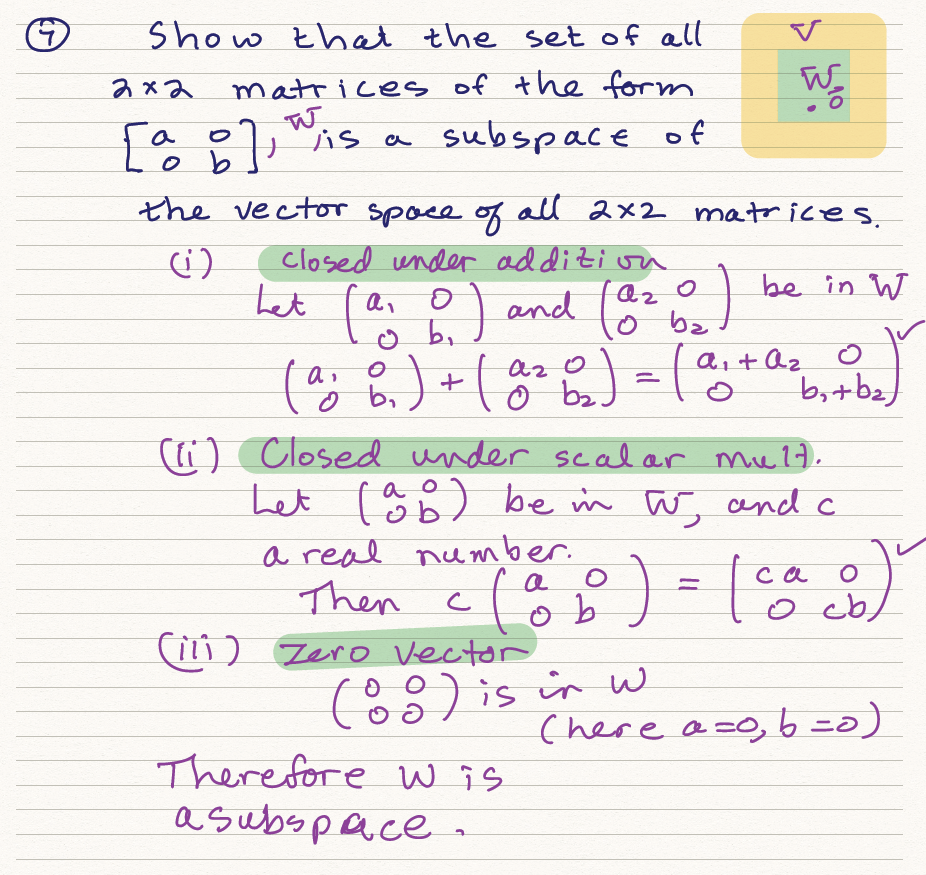 ④ Show that the set of all V
2×2 matrices of the form W
[a 0
0 b], W, is a subspace of . 0
the vector space of all 2×2 matrices.
(i) closed under addition
Let (a₁ 0
0 b₁) and (a₂ 0
0 b₂) be in W
(a₁ 0
0 b₁) + (a₂ 0
0 b₂) = (a₁+a₂ 0
0 b₁+b₂) ✓
(ii) Closed under scalar mult.
Let (a 0
0 b) be in W, and c
a real number.
Then c (a 0
0 b) = (ca 0
0 cb) ✓
(iii) Zero vector
(0 0
0 0) is in W
(here a=0, b=0)
Therefore W is
a subspace.